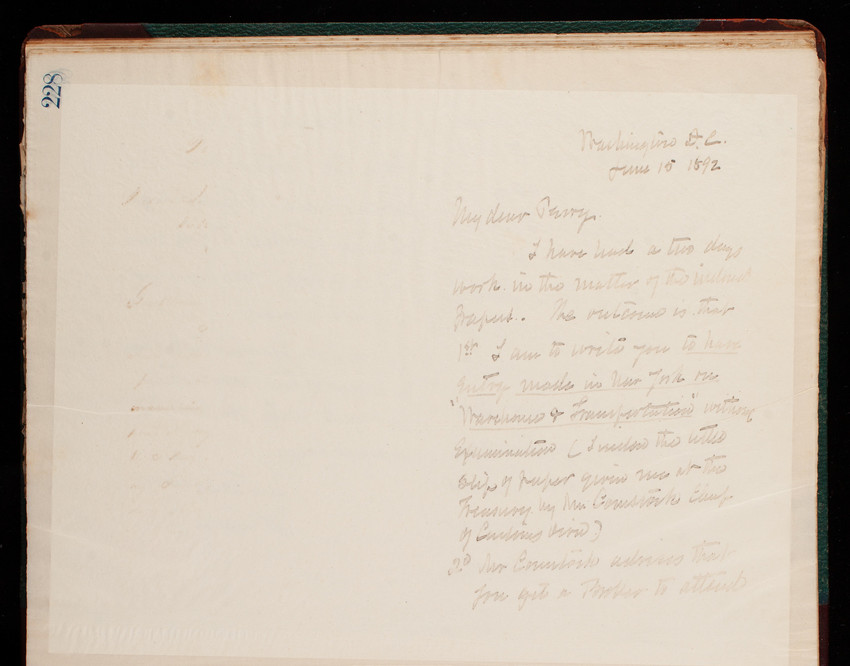 228
Washington D.C.
June 15 1892
My dear Perry.
I have had a two days
work in the matter of the inclosed
Papers. The outcome is that
1st I am to write you to have
Entry made in New York on
"Warehouse & Transportation" without
Examination (I inclose the little
slip of paper given me at the
Treasury by Mr Comstock Chief
of Customs Divn)
2d Mr Comstock advises that
you get a Broker to attend